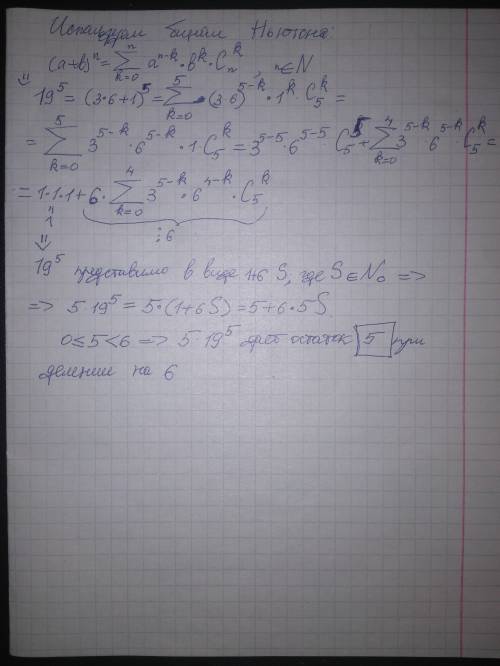 Используем бином Ньютона:
(a+b)ⁿ = ∑ₖ₌₀ⁿ aⁿ⁻ᵏ · bᵏ · Cₙᵏ, n∈N
=> 19⁵ = (3·6+1)⁵ = ∑ₖ₌₀⁵ (3·6)⁵⁻ᵏ · 1ᵏ · C₅ᵏ =
= ∑ₖ₌₀⁵ 3⁵⁻ᵏ · 6⁵⁻ᵏ · 1 · C₅ᵏ = 3⁵⁻⁵ · 6⁵⁻⁵ · C₅⁵ + ∑ₖ₌₀⁴ 3⁵⁻ᵏ · 6⁵⁻ᵏ · C₅ᵏ =
= 1·1·1 + 6 · ∑ₖ₌₀⁴ 3⁵⁻ᵏ · 6⁴⁻ᵏ · C₅ᵏ
" 1 ⋮ 6
=>
19⁵ представимо в виде 1+6S, где S∈N₀ =>
=> 5·19⁵ = 5·(1+6S) = 5+6·5S
0≤5<6 => 5·19⁵ дает остаток 5 при
делении на 6